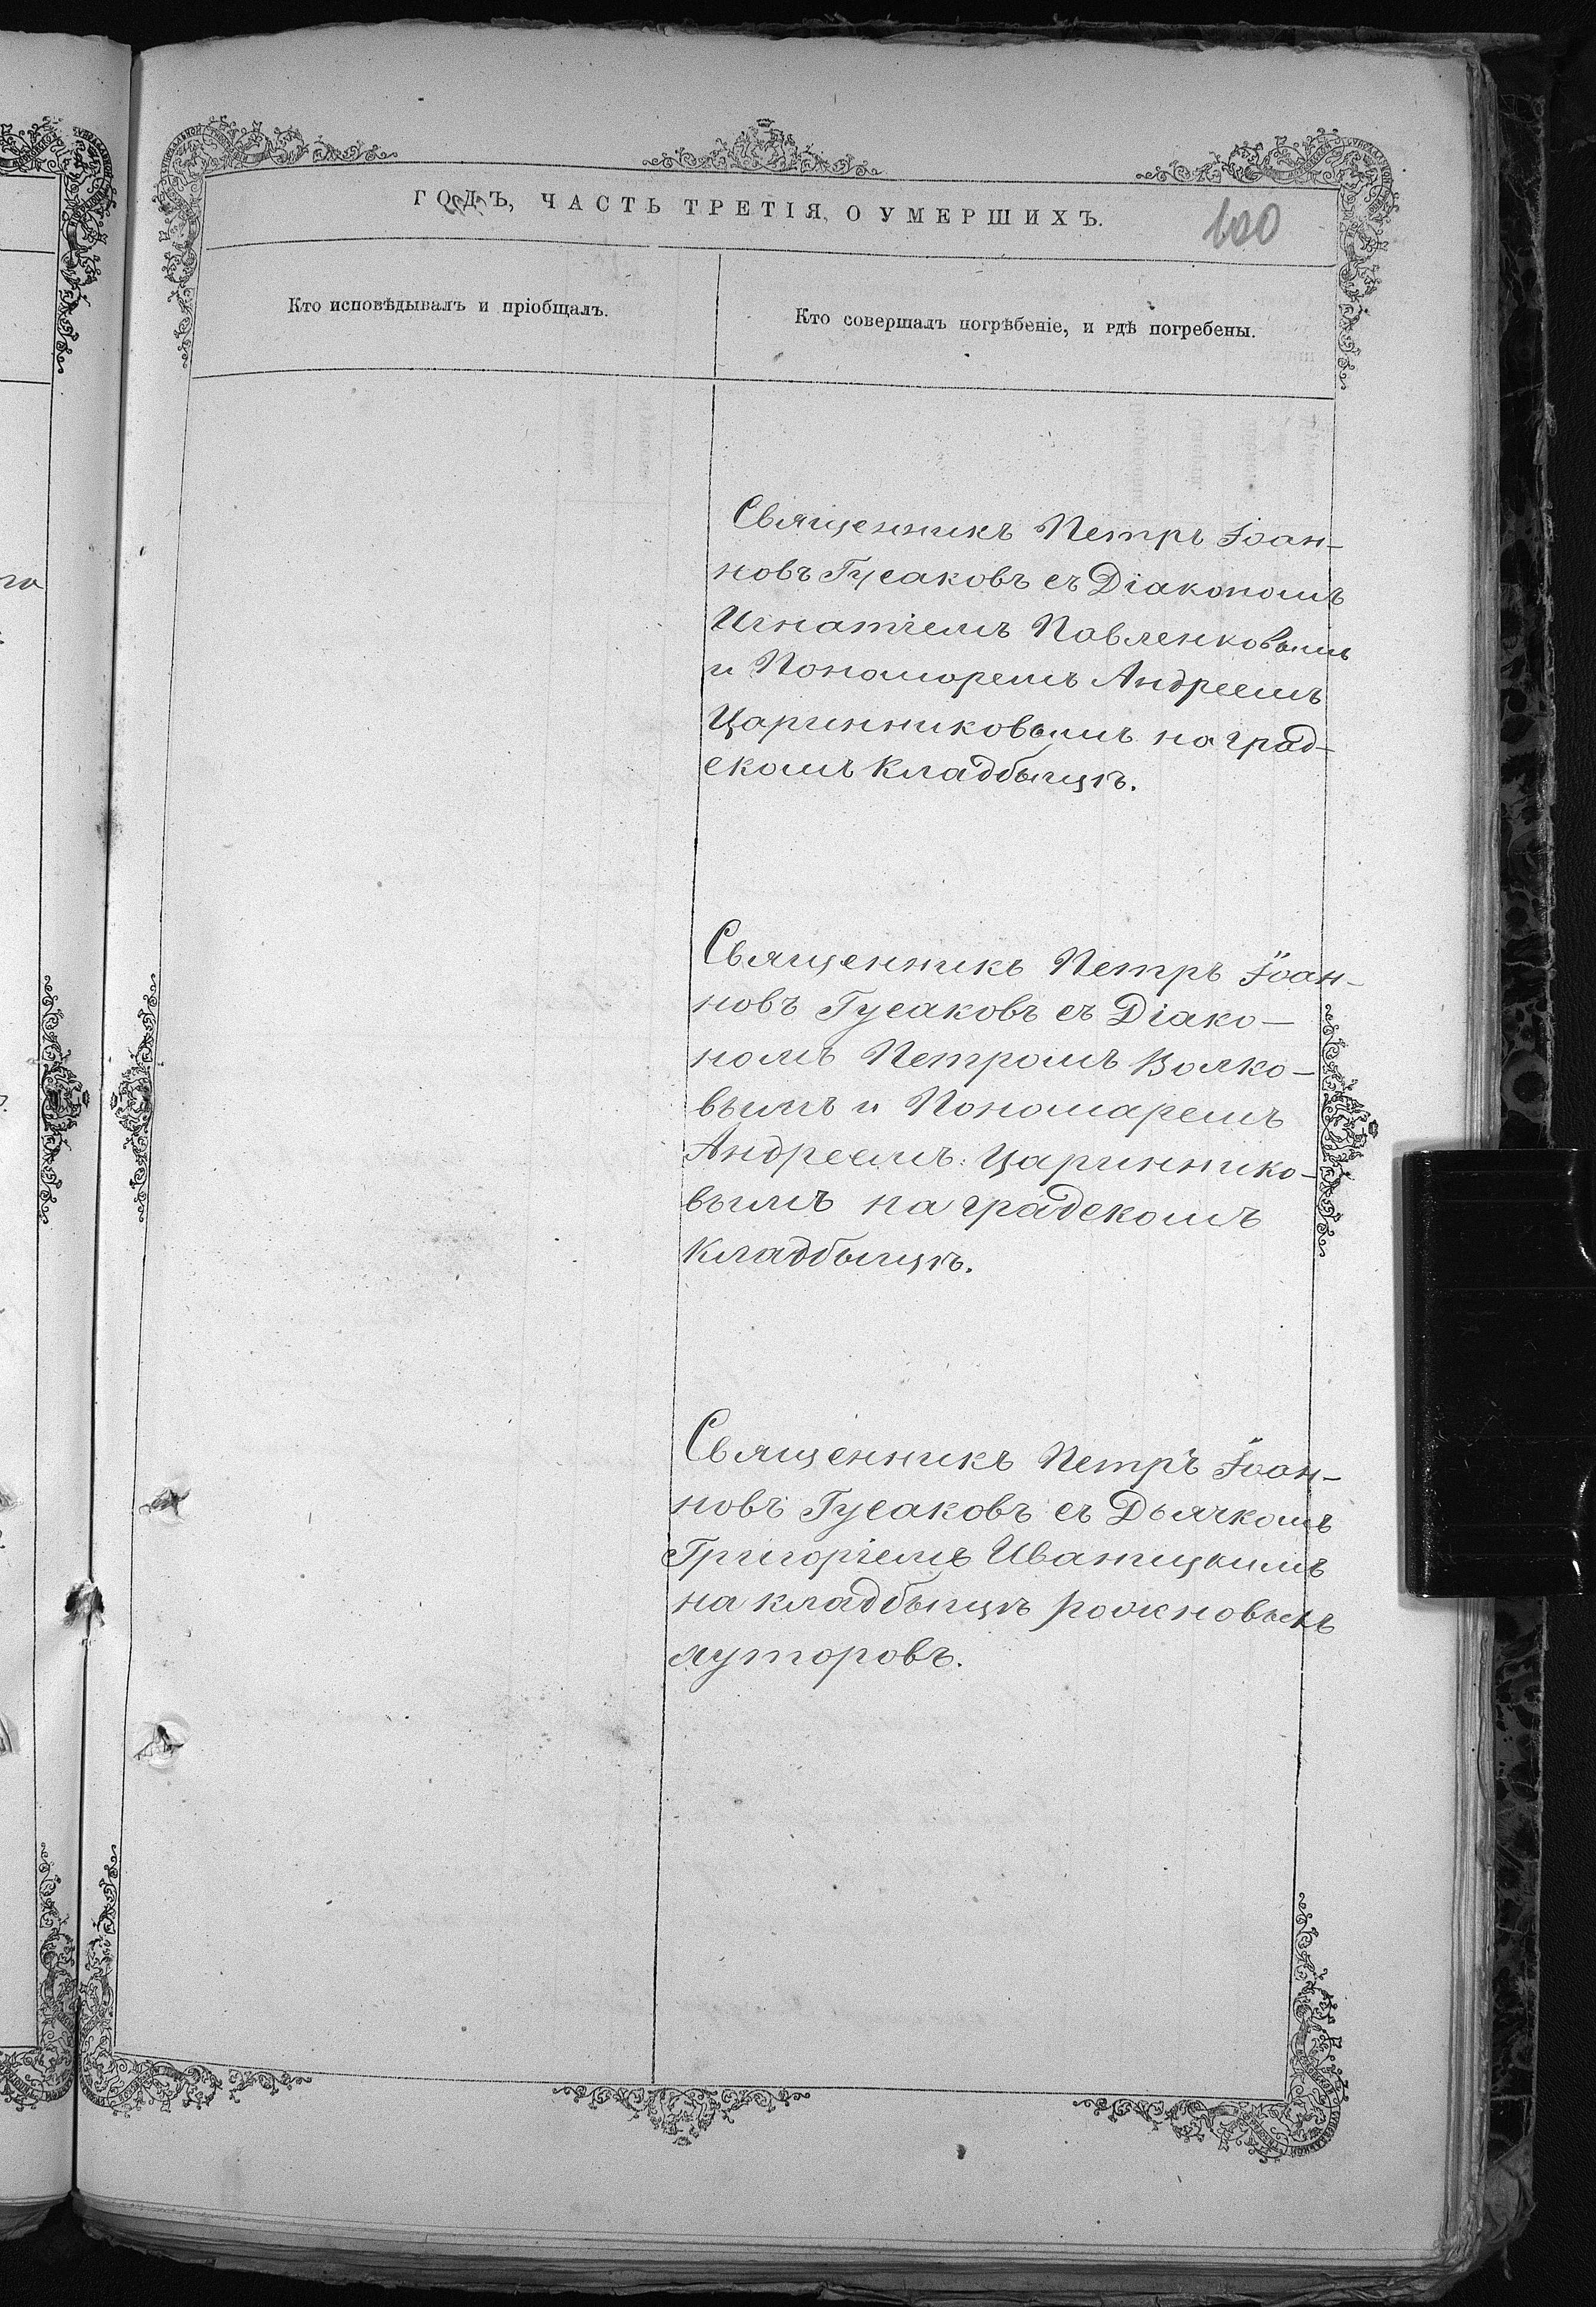 ГОДЪ, ЧАСТЬ ТРЕТІЯ, О УМЕРШИХЪ.
100
Кто исповѣдывалъ и пріобщалъ.
Кто совершалъ погрѣбеніе, и гдѣ погребены.
Священникъ Петръ Іоан-
новъ Гусаковъ съ Діакономъ
Игнатіемъ Павленковымъ
и Пономоремъ Андреемъ
Царинниковымъ на град-
скомъ кладбыщѣ.
Священникъ Петръ Іоан-
новъ Гусаковъ съ Діако-
номъ Петромъ Волко-
вымъ и Пономаремъ
Андреемъ Цариннико-
вымъ на градскомъ
кладбыщѣ.
Священникъ Петръ Іоан-
новъ Гусаковъ съ Дьячкомъ
Григоріемъ Иваницкимъ
на кладбыщѣ рожновыхъ
хуторовъ.